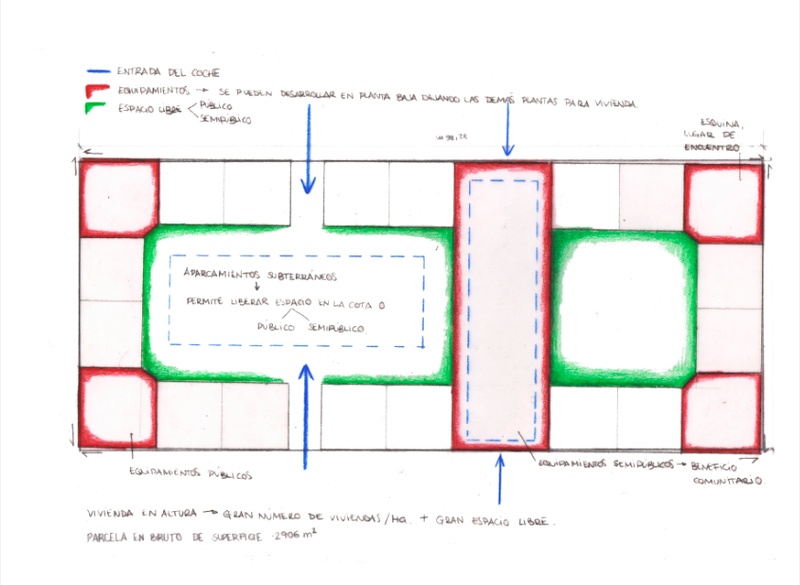 ENTRADA DEL COCHE
EQUIPAMIENTOS → SE PUEDEN DESARROLLAR EN PLANTA BAJA DEJANDO LAS DEMÁS PLANTAS PARA VIVIENDA.
ESPACIO LIBRE < PÚBLICO
SEMIPÚBLICO
ESQUINA,
LUGAR DE
ENCUENTRO
APARCAMIENTOS SUBTERRÁNEOS
↓
PERMITE LIBERAR ESPACIO EN LA COTA 0
PÚBLICO SEMIPÚBLICO
EQUIPAMIENTOS PÚBLICOS
EQUIPAMIENTOS SEMIPUBLICOS → BENEFICIO
COMUNITARIO
VIVIENDA EN ALTURA → GRAN NÚMERO DE VIVIENDAS/HA. + GRAN ESPACIO LIBRE.
PARCELA EN BRUTO DE SUPERFICIE 2906 m²